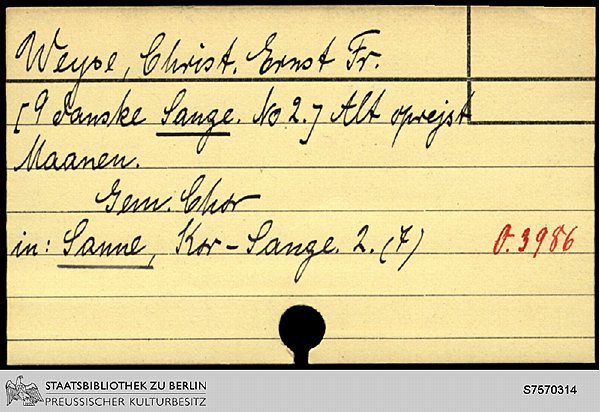 Weyse, Christ. Ernst Fr.
[9 danske Sange. No 2.] Alt oprejst
Maanen.
Gem. Chor
in: Sanne, Kor-Sange. 2. (7) O. 3986
STAATSBIBLIOTHEK ZU BERLIN
PREUSSISCHER KULTURBESITZ
S7570314